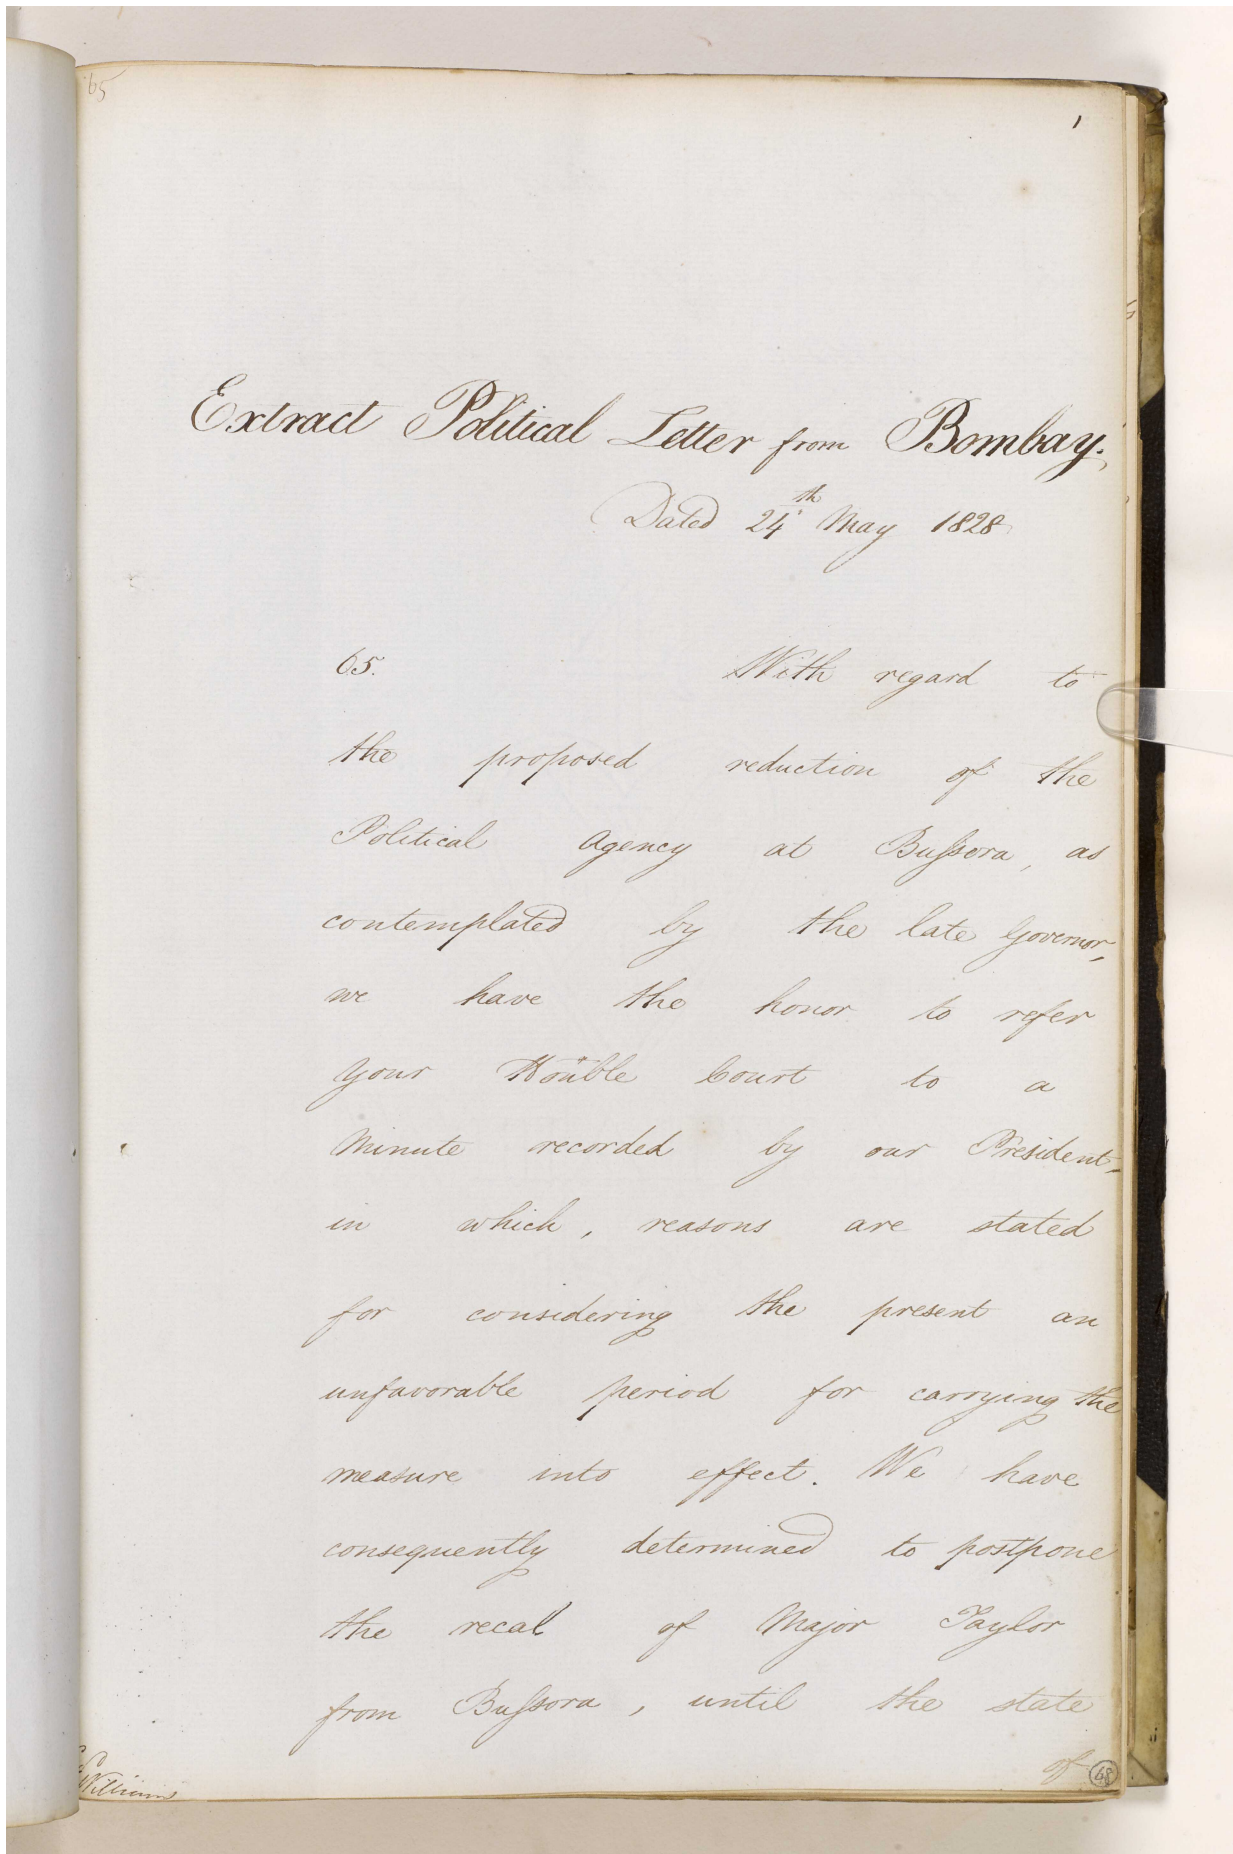 65
1
Extract Political Letter from Bombay.
Dated 24th May 1828
65. With regard to
the proposed reduction of the
Political Agency at Bussora, as
contemplated by the late Governor,
we have the honor to refer
your Honble Court to a
Minute recorded by our President,
in which, reasons are stated
for considering the present an
unfavorable period for carrying the
measure into effect. We have
consequently determined to postpone
the recal of Major Taylor
from Bussora, until the state
of
48
Williams